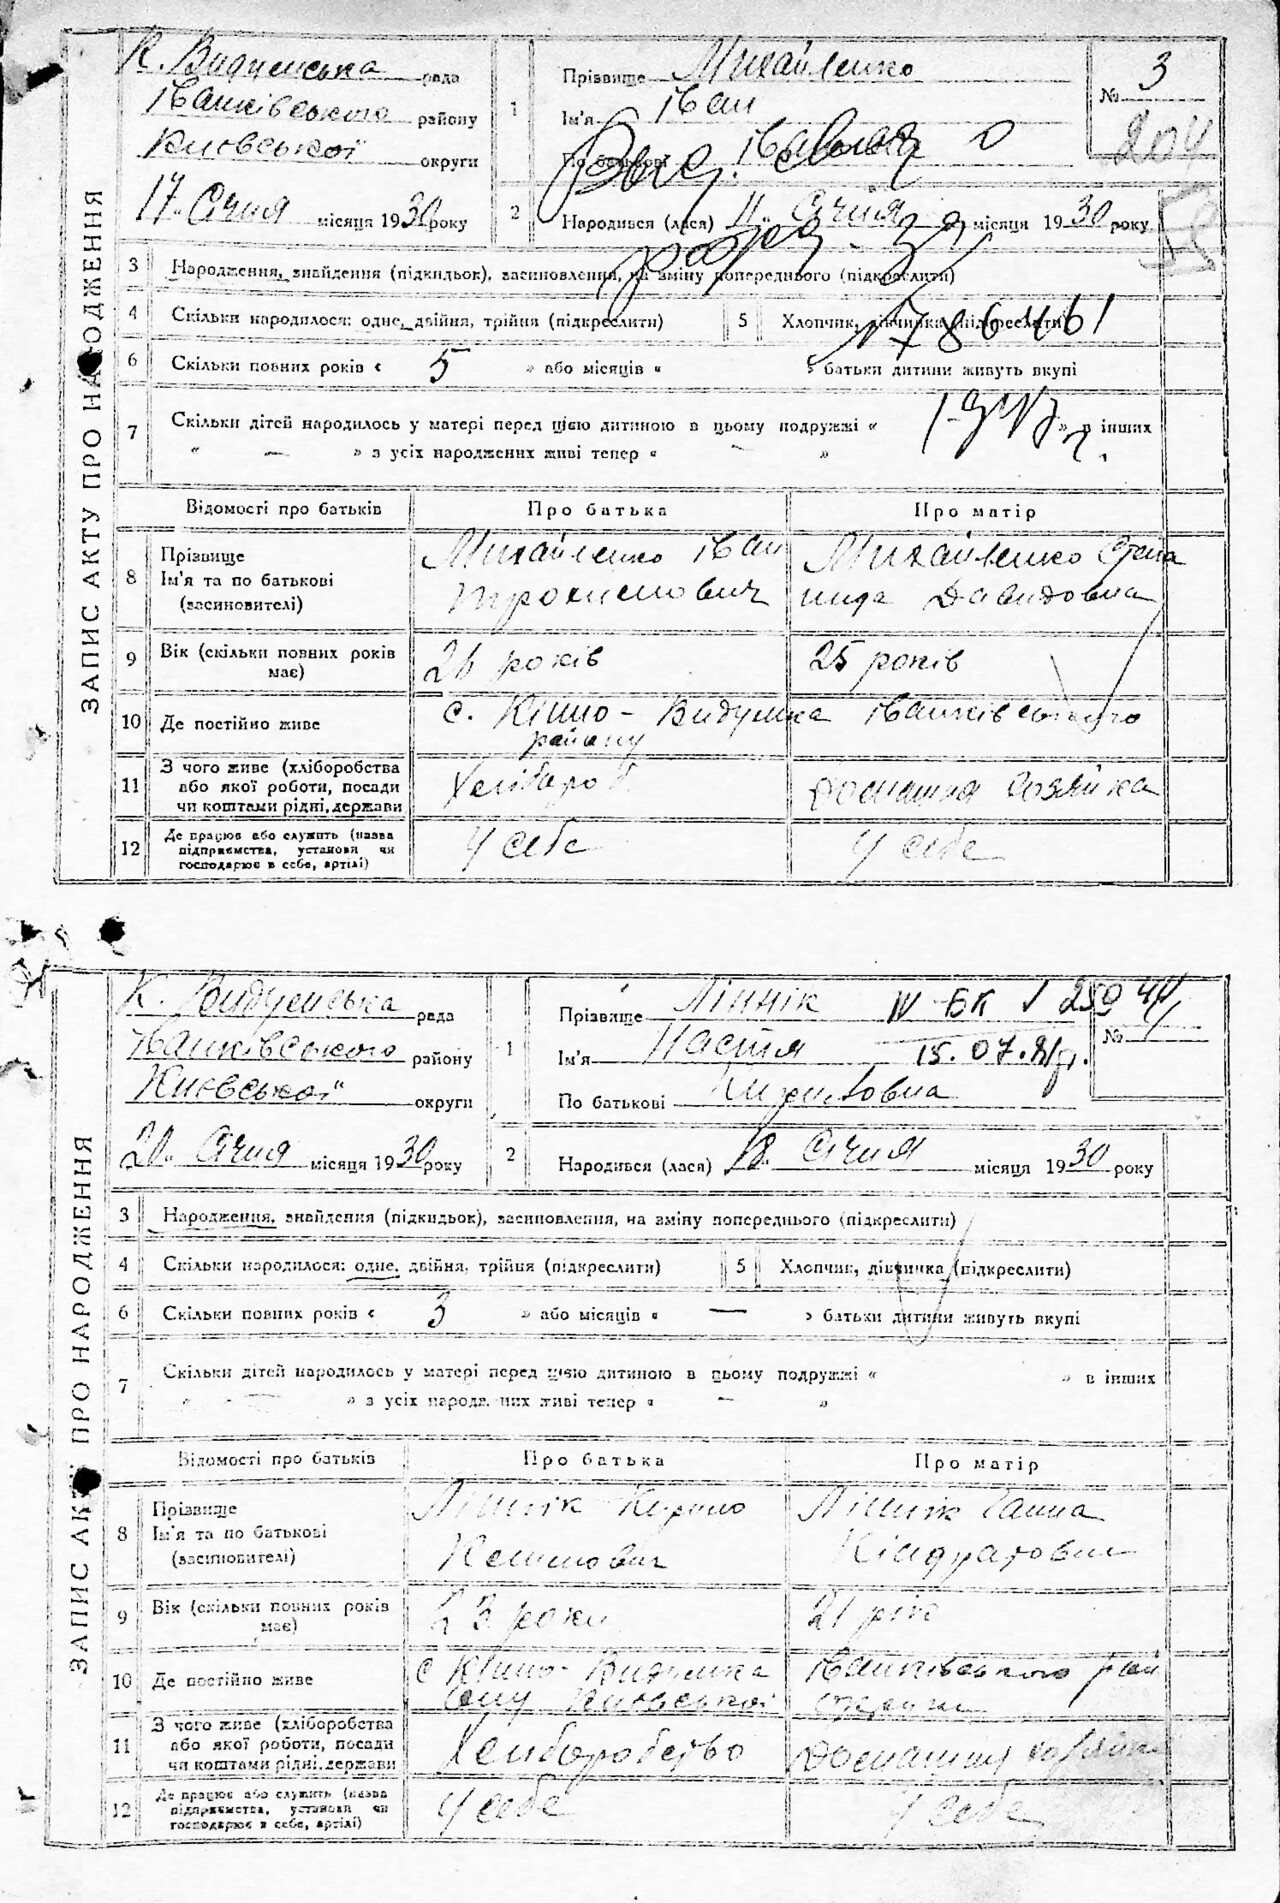 ЗАПИС АКТУ ПРО НАРОДЖЕННЯ
К. Видуменська рада
Іванківського району
Київської округи
17 Січня місяця 1930 року
1
Прізвище Михайленко
Ім'я Іван
По батькові Іванов
№ 3
204
2
Народився (лася) 11 Січня місяця 1930 року
3 Народження, знайдення (підкидьок), засиновлення, на зміну попереднього (підкреслити)
4 Скільки народилося: одне, двійня, трійня (підкреслити)
5 Хлопчик, дівчинка (підкреслити)
6 Скільки повних років « 5 » або місяців « » батьки дитини живуть вкупі
7 Скільки дітей народилось у матері перед цією дитиною в цьому подружжі « » в інших
« — » з усіх народжених живі тепер « — »
Відомості про батьків Про батька Про матір
8 Прізвище
Ім'я та по батькові
(засиновителі)
Михайленко Іван
Михайленко Степа
нида Давидовна
9 Вік (скільки повних років має)
26 років
25 років
10 Де постійно живе
с. Кіпно-Видумка Іванківського
району
11 З чого живе (хліборобства або якої роботи, посади чи коштами рідні, держави
Хлібороб
Домашня хозяйка
12 Де працює або служить (назва підприємства, установи чи господарює в себе, артілі)
У себе
У себе
ЗАПИС АКТУ ПРО НАРОДЖЕННЯ
К. Видуменська рада
Іванківського району
Київської округи
20 Січня місяця 1930 року
1
Прізвище Ліннік
Ім'я Настія
По батькові Кириловна
IV-БК
15.07.81р.
№ 4
2
Народився (лася) 18 Січня місяця 1930 року
3 Народження, знайдення (підкидьок), засиновлення, на зміну попереднього (підкреслити)
4 Скільки народилося: одне, двійня, трійня (підкреслити)
5 Хлопчик, дівчинка (підкреслити)
6 Скільки повних років « 3 » або місяців « — » батьки дитини живуть вкупі
7 Скільки дітей народилось у матері перед цією дитиною в цьому подружжі « » в інших
« — » з усіх народжених живі тепер « — »
Відомості про батьків Про батька Про матір
8 Прізвище
Ім'я та по батькові
(засиновителі)
Ліннік Кирило
Ліннік Ганна
Кіндратовна
9 Вік (скільки повних років має)
23 роки
21 рік
10 Де постійно живе
с Кіпно-Видумка Іванківського рай
ону Київської округи
11 З чого живе (хліборобства або якої роботи, посади чи коштами рідні, держави
Хліборобство
Домашня хозяйка
12 Де працює або служить (назва підприємства, установи чи господарює в себе, артілі)
У себе
У себе